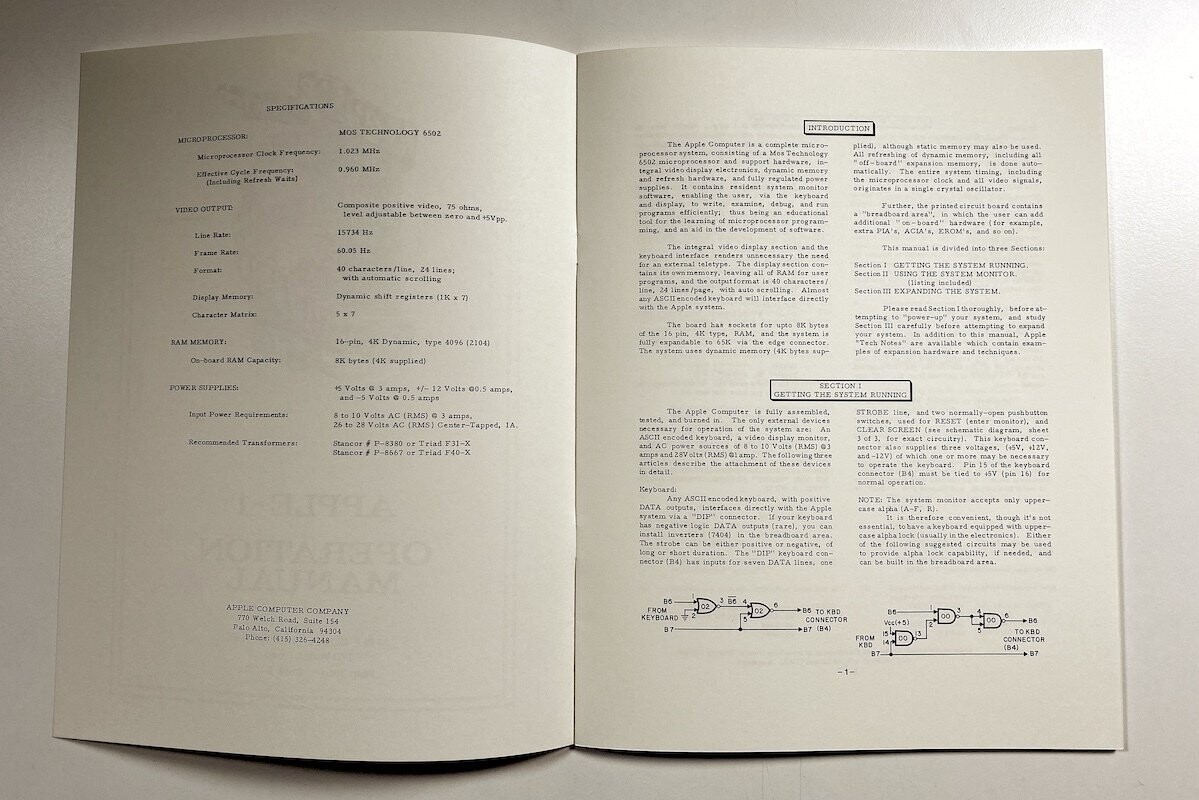 SPECIFICATIONS
MICROPROCESSOR: MOS TECHNOLOGY 6502
Microprocessor Clock Frequency: 1.023 MHz
Effective Cycle Frequency: 0.960 MHz
(Including Refresh Waits)
VIDEO OUTPUT: Composite positive video, 75 ohms,
level adjustable between zero and +5Vpp.
Line Rate: 15734 Hz
Frame Rate: 60.05 Hz
Format: 40 characters/line, 24 lines;
with automatic scrolling
Display Memory: Dynamic shift registers (1K x 7)
Character Matrix: 5 x 7
RAM MEMORY: 16-pin, 4K Dynamic, type 4096 (2104)
On-board RAM Capacity: 8K bytes (4K supplied)
POWER SUPPLIES: +5 Volts @ 3 amps, +/- 12 Volts @0.5 amps,
and -5 Volts @ 0.5 amps
Input Power Requirements: 8 to 10 Volts AC (RMS) @ 3 amps,
26 to 28 Volts AC (RMS) Center-Tapped, 1A.
Recommended Transformers: Stancor # P-8380 or Triad F31-X
Stancor # P-8667 or Triad F40-X
APPLE COMPUTER COMPANY
770 Welch Road, Suite 154
Palo Alto, California 94304
Phone: (415) 326-4248
INTRODUCTION
The Apple Computer is a complete micro-
processor system, consisting of a Mos Technology
6502 microprocessor and support hardware, in-
tegral video display electronics, dynamic memory
and refresh hardware, and fully regulated power
supplies. It contains resident system monitor
software, enabling the user, via the keyboard
and display, to write, examine, debug, and run
programs efficiently; thus being an educational
tool for the learning of microprocessor program-
ming, and an aid in the development of software.
The integral video display section and the
keyboard interface renders unnecessary the need
for an external teletype. The display section con-
tains its own memory, leaving all of RAM for user
programs, and the output format is 40 characters/
line, 24 lines/page, with auto scrolling. Almost
any ASCII encoded keyboard will interface directly
with the Apple system.
The board has sockets for upto 8K bytes
of the 16 pin, 4K type, RAM, and the system is
fully expandable to 65K via the edge connector.
The system uses dynamic memory (4K bytes sup-
plied), although static memory may also be used.
All refreshing of dynamic memory, including all
"off-board" expansion memory, is done auto-
matically. The entire system timing, including
the microprocessor clock and all video signals,
originates in a single crystal oscillator.
Further, the printed circuit board contains
a "breadboard area", in which the user can add
additional "on-board" hardware (for example,
extra PIA's, ACIA's, EROM's, and so on).
This manual is divided into three Sections:
Section I GETTING THE SYSTEM RUNNING.
Section II USING THE SYSTEM MONITOR.
(listing included)
Section III EXPANDING THE SYSTEM.
Please read Section I thoroughly, before at-
tempting to "power-up" your system, and study
Section III carefully before attempting to expand
your system. In addition to this manual, Apple
"Tech Notes" are available which contain exam-
ples of expansion hardware and techniques.
SECTION I
GETTING THE SYSTEM RUNNING
The Apple Computer is fully assembled,
tested, and burned in. The only external devices
necessary for operation of the system are: An
ASCII encoded keyboard, a video display monitor,
and AC power sources of 8 to 10 Volts (RMS) @3
amps and 28 Volts (RMS) @1 amp. The following three
articles describe the attachment of these devices
in detail.
Keyboard:
Any ASCII encoded keyboard, with positive
DATA outputs, interfaces directly with the Apple
system via a "DIP" connector. If your keyboard
has negative logic DATA outputs (rare), you can
install inverters (7404) in the breadboard area.
The strobe can be either positive or negative, of
long or short duration. The "DIP" keyboard con-
nector (B4) has inputs for seven DATA lines, one
STROBE line, and two normally-open pushbutton
switches, used for RESET (enter monitor), and
CLEAR SCREEN (see schematic diagram, sheet
3 of 3, for exact circuitry). This keyboard con-
nector also supplies three voltages, (+5V, +12V,
and -12V) of which one or more may be necessary
to operate the keyboard. Pin 15 of the keyboard
connector (B4) must be tied to +5V (pin 16) for
normal operation.
NOTE: The system monitor accepts only upper-
case alpha (A-F, R).
It is therefore convenient, though it's not
essential, to have a keyboard equipped with upper-
case alpha lock (usually in the electronics). Either
of the following suggested circuits may be used
to provide alpha lock capability, if needed, and
can be built in the breadboard area.
B6 1 02 3 B6 4 02 6 B6 TO KBD
FROM
KEYBOARD 2 5 CONNECTOR
B7 B7 (B4)
B6 1 00 3 4 00 6 B6
Vcc(+5) 2 5
FROM
KBD 15 14 00 13
TO KBD
CONNECTOR
(B4)
B7 B7
-1-